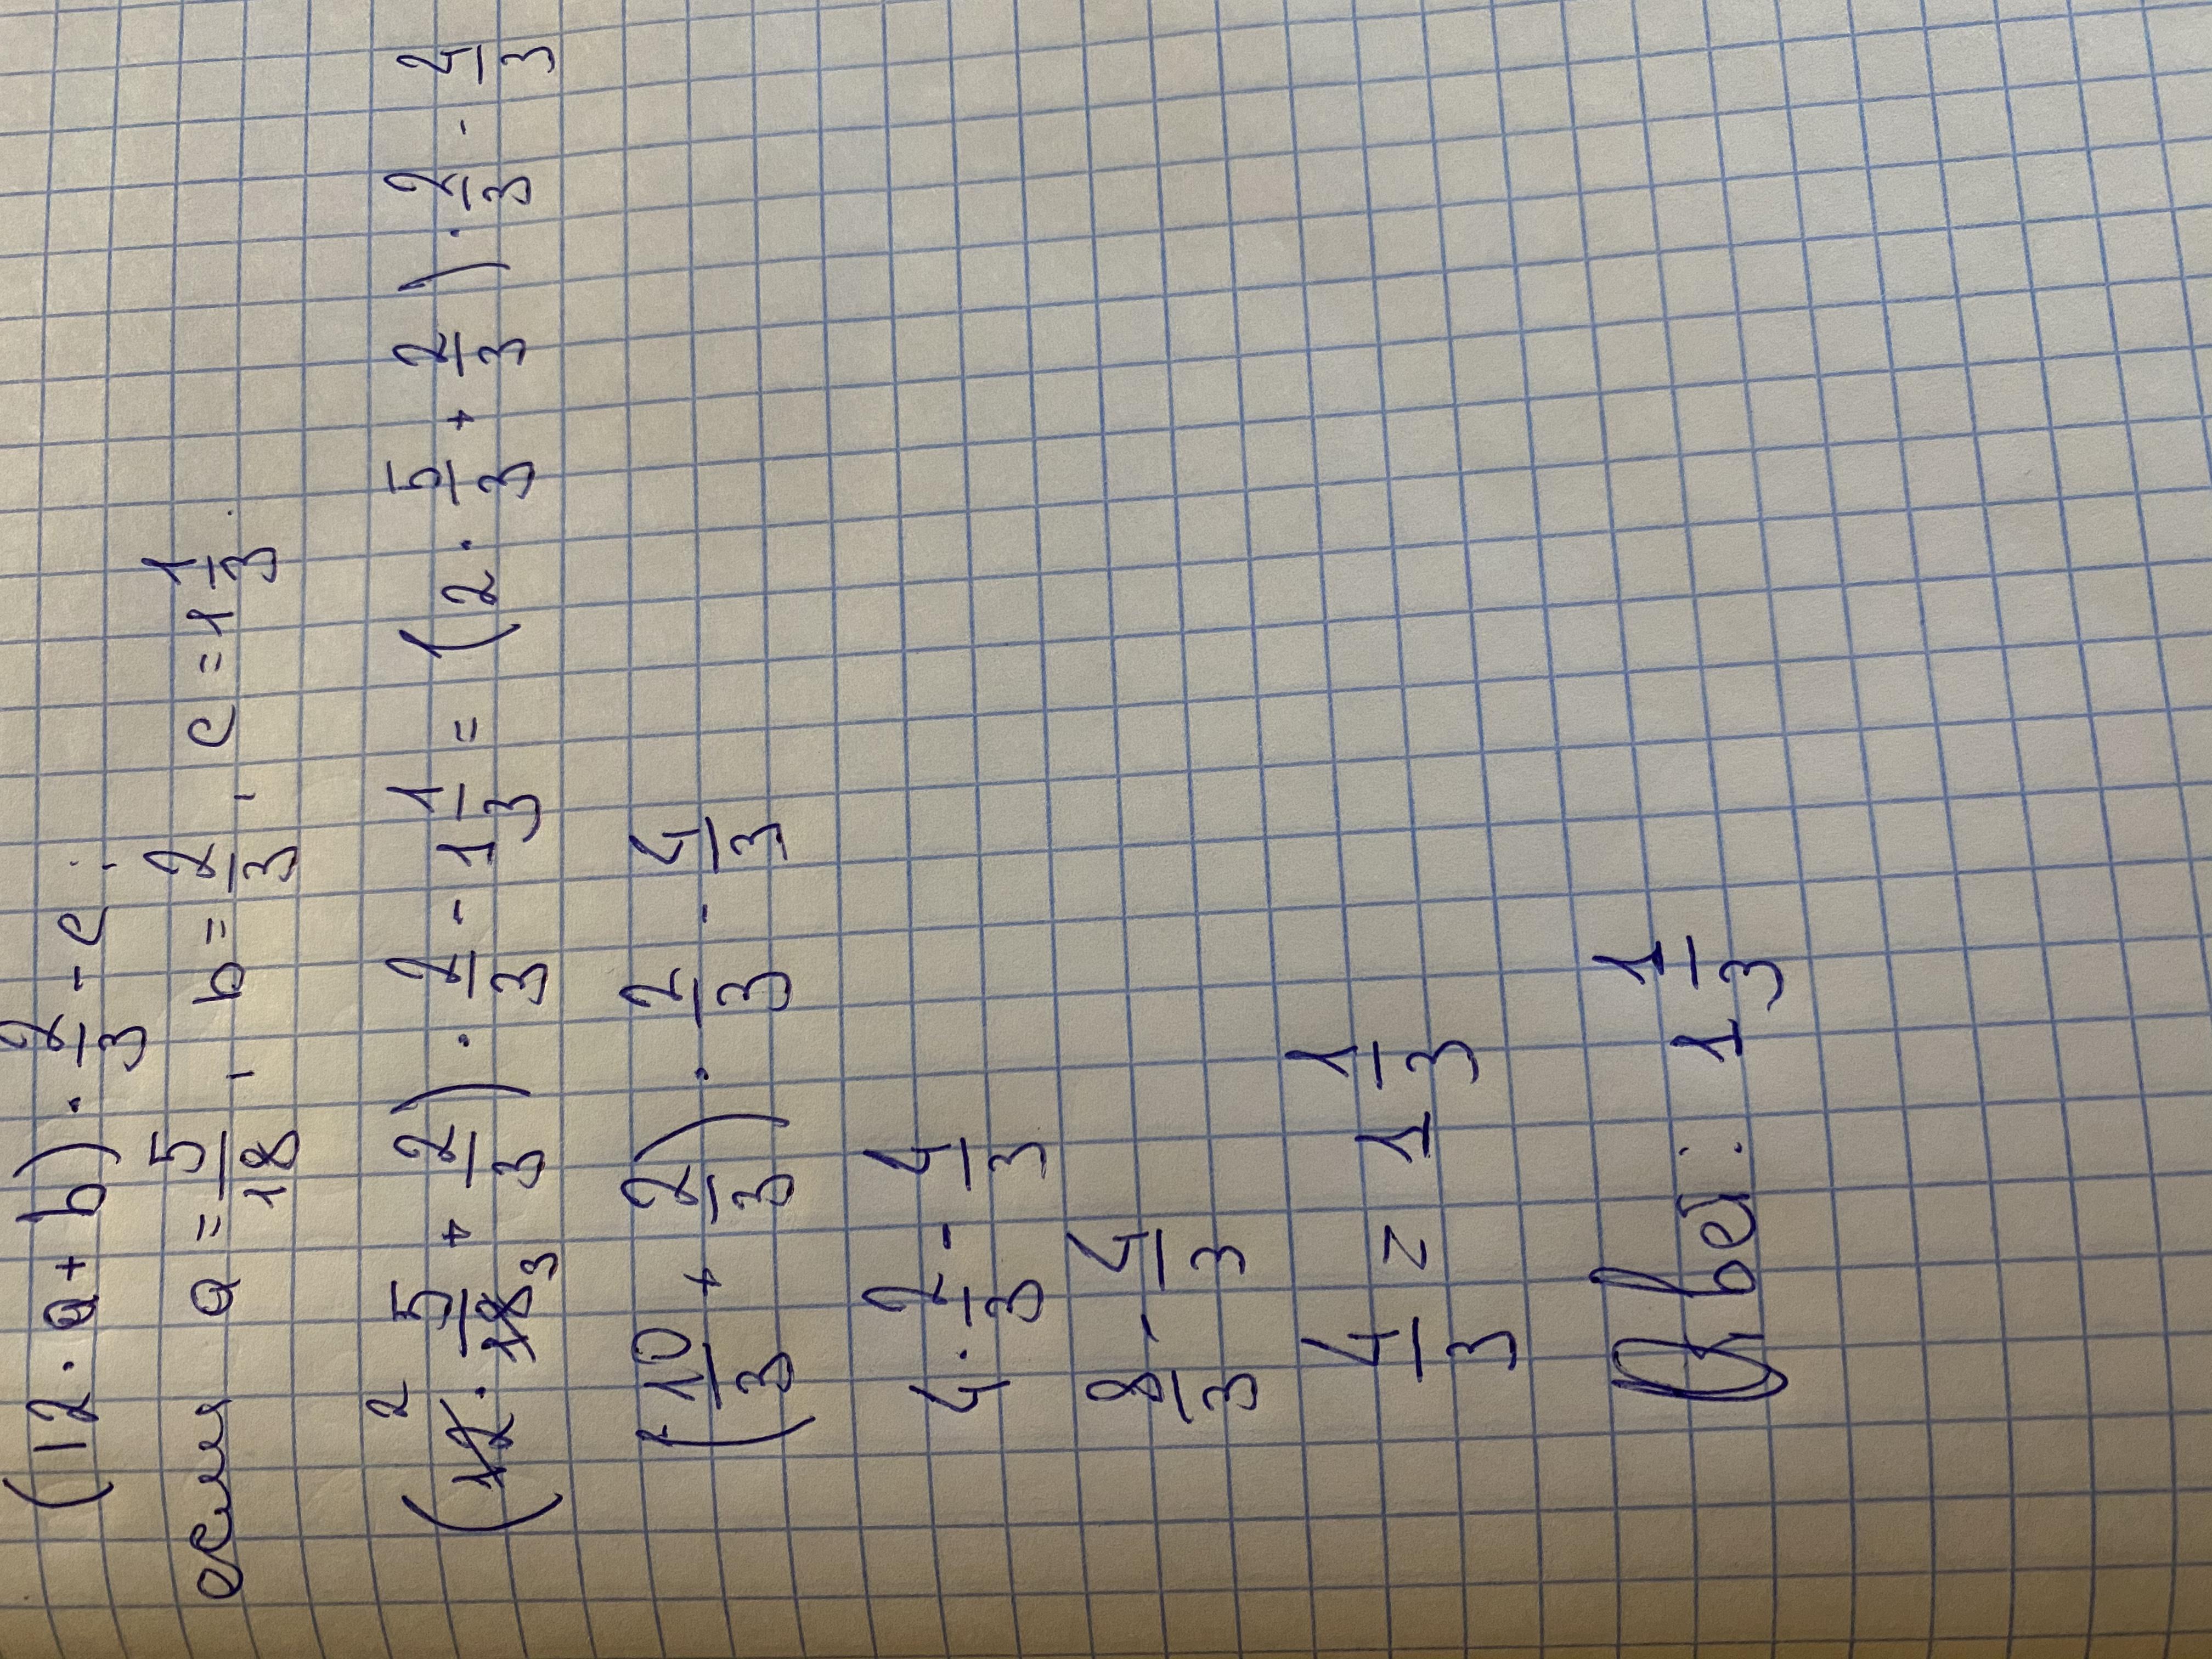 (12 · a + b) · 2/3 - c ;
если a = 5/18 , b = 2/3 , c = 1 1/3 .
(12 2 · 5/18 3 + 2/3) · 2/3 - 1 1/3 = (2 · 5/3 + 2/3) · 2/3 - 4/3
(10/3 + 2/3) · 2/3 - 4/3
4 · 2/3 - 4/3
8/3 - 4/3
4/3 = 1 1/3
Ответ: 1 1/3